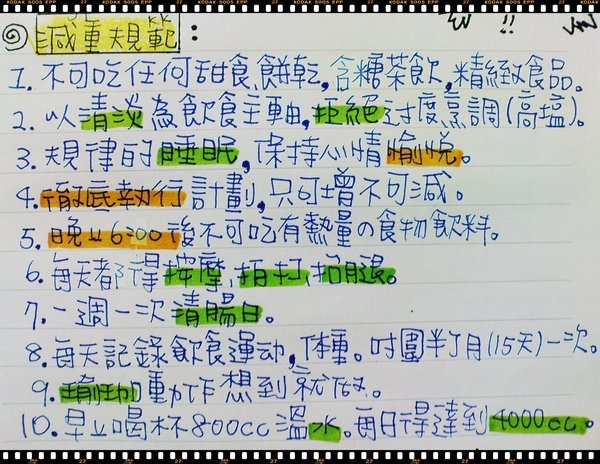 KODAK 5005 EPP KODAK 5005 EPP KODAK 5005 EPP KODAK 5005 EPP
減重規範：
!!
1. 不可吃任何甜食,餅乾,含糖茶飲,精緻食品。
2. 以清淡為飲食主軸,拒絕过度烹調(高塩)。
3. 規律的睡眠,保持心情愉悅。
4. 徹底執行計劃,只可增不可減。
5. 晚上6:00後不可吃有熱量の食物飲料。
6. 每天都得按摩,拍打,抬腿。
7. 一週一次清腸日。
8. 每天記錄飲食運动,体重。吋圍半个月(15天)一次。
9. 動作想到就做。
10. 早上喝杯800cc溫水。每日得達到4000cc。